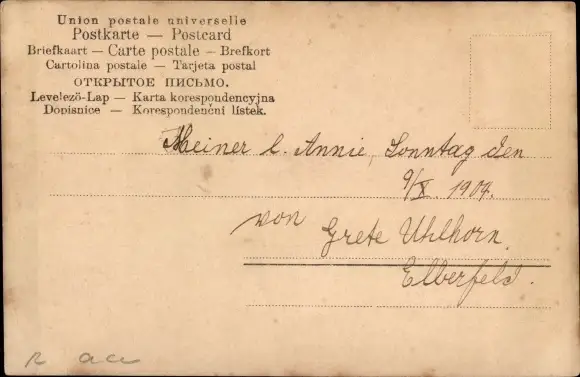 Union postale universelle
Postkarte — Postcard
Briefkaart — Carte postale — Brefkort
Cartolina postale — Tarjeta postal
ОТКРЫТОЕ ПИСЬМО.
Levelező-Lap — Karta korespondencyjna
Dopisnice — Korespondenční lístek.
Meiner l. Annie, Sonntag den
9/X 1904.
von
Grete Uhlhorn.
Elberfeld.